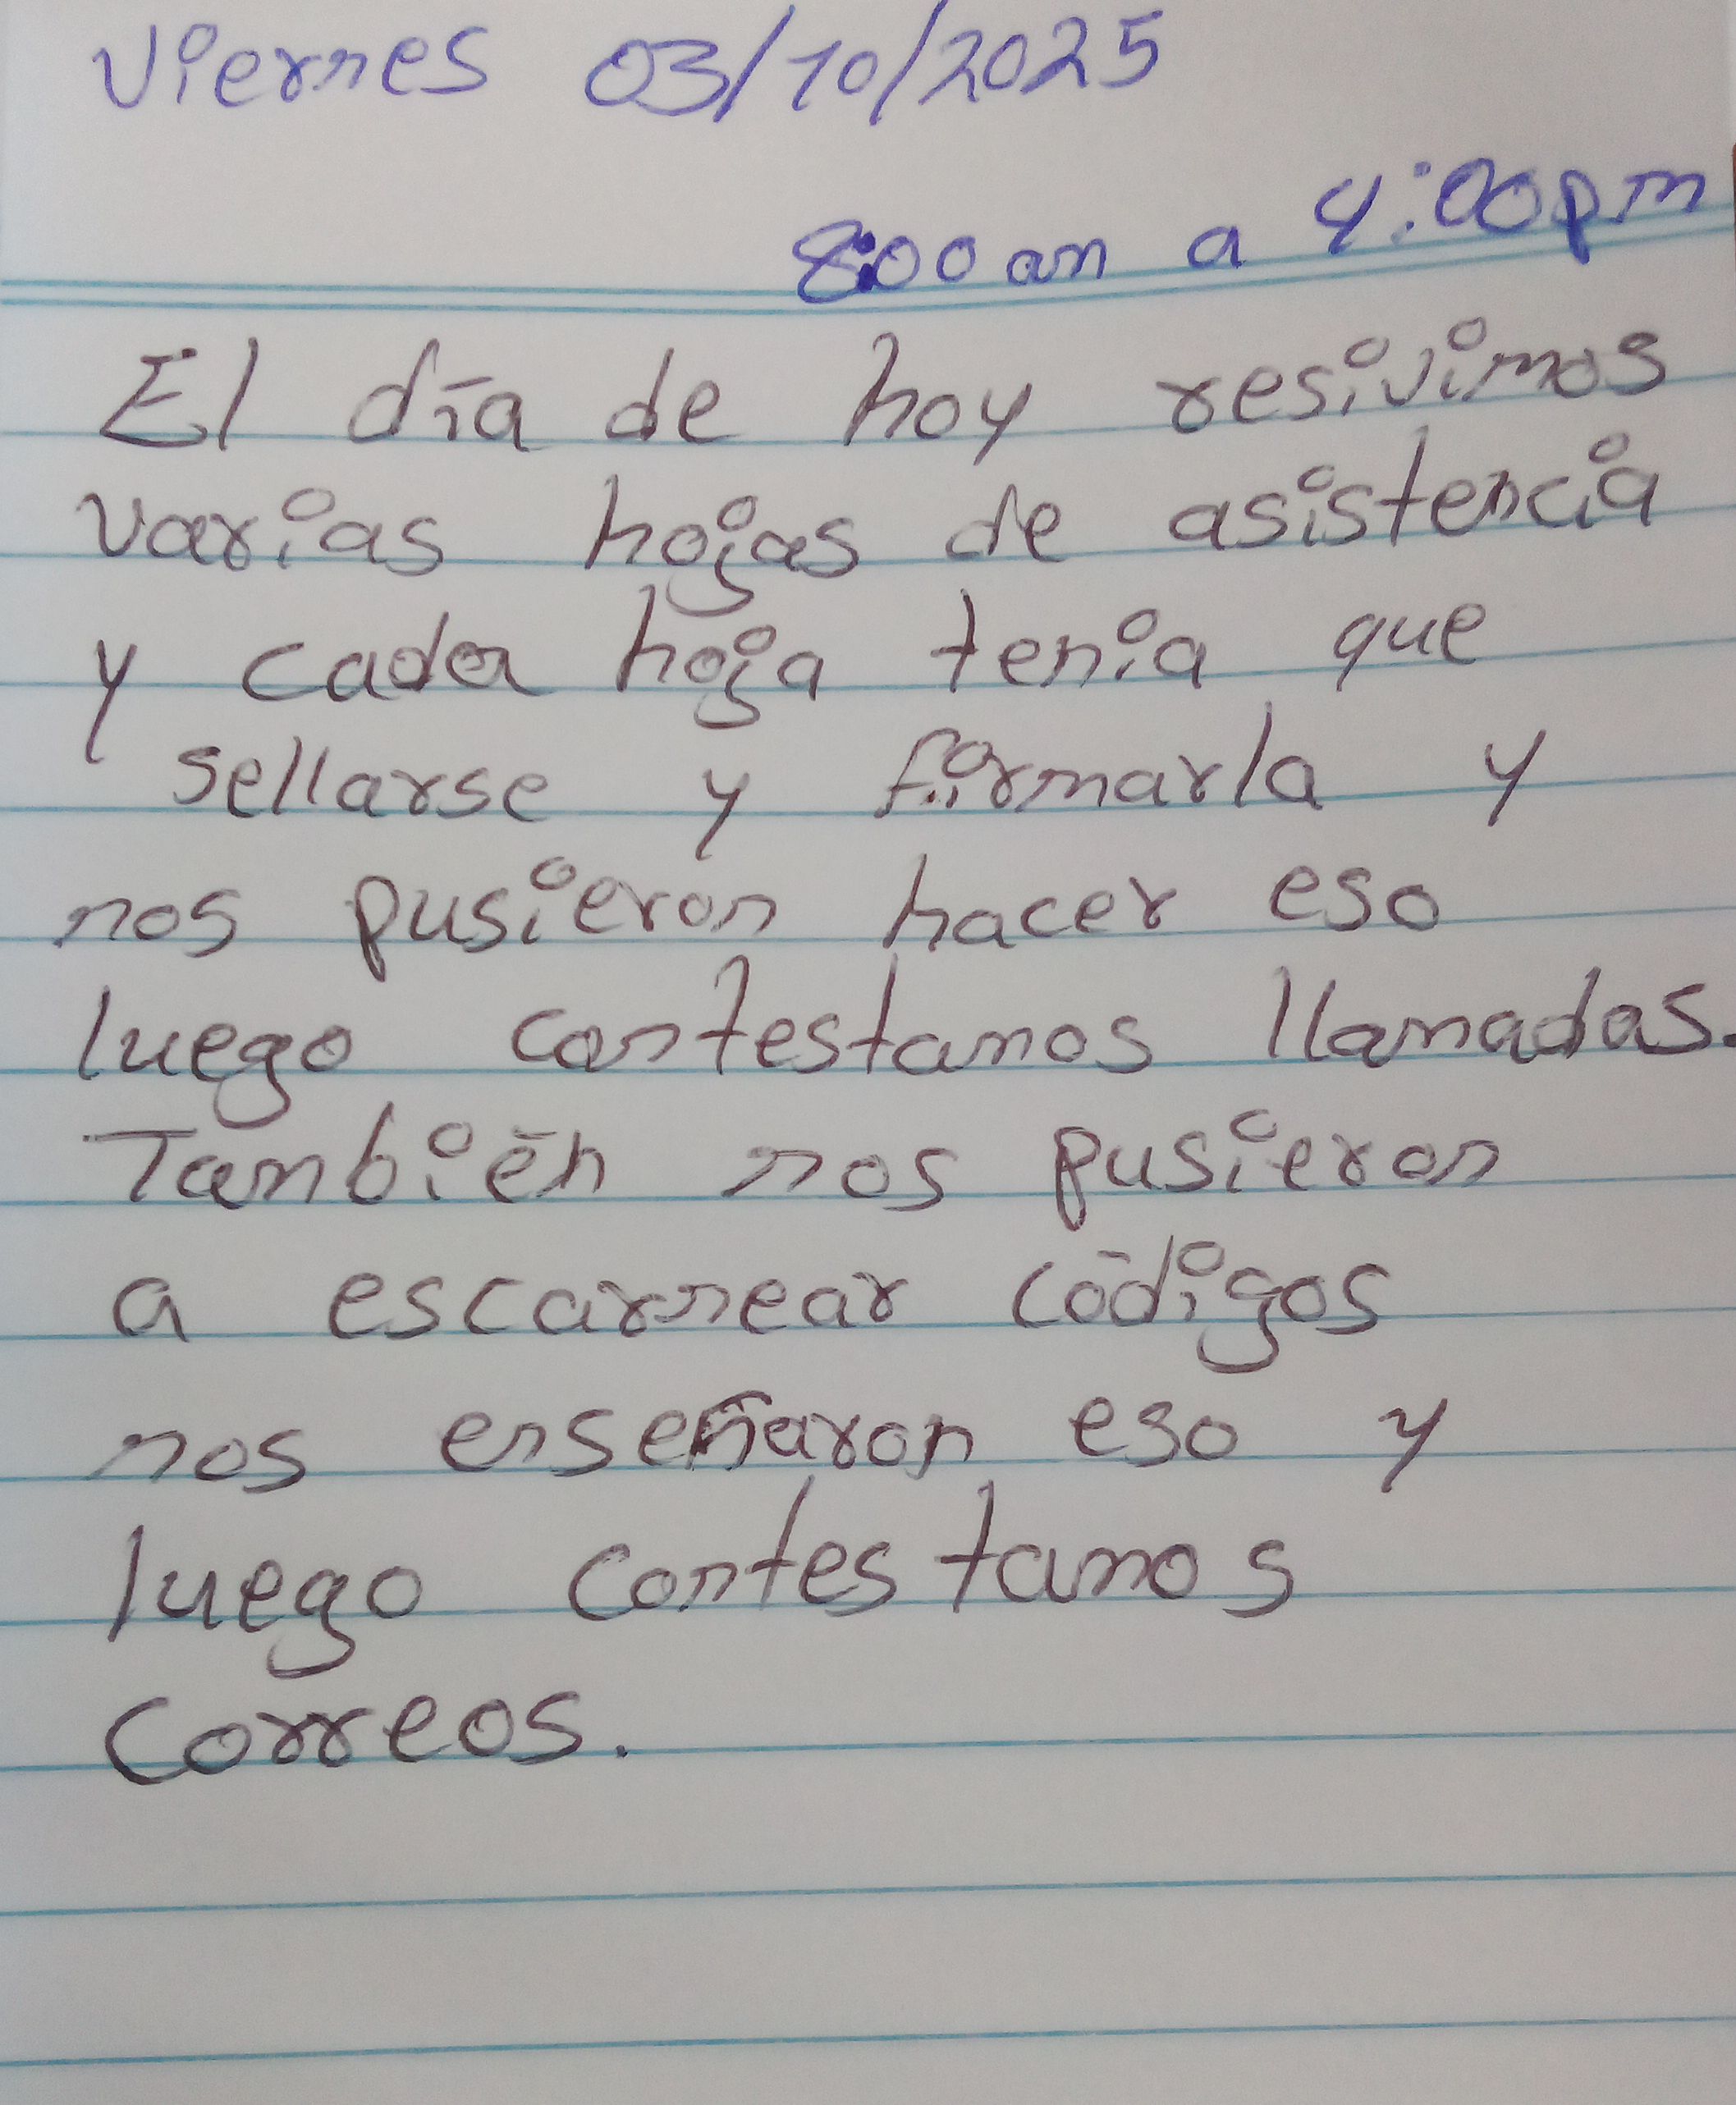 Viernes 03/10/2025
8:00 am a 4:00pm
El día de hoy resivimos
varias hojas de asistencia
y cada hoja tenia que
sellarse y firmarla y
nos pusieron hacer eso
luego contestamos llamadas.
También nos pusieron
a escarnear códigos
nos enseñaron eso y
luego contestamos
correos.